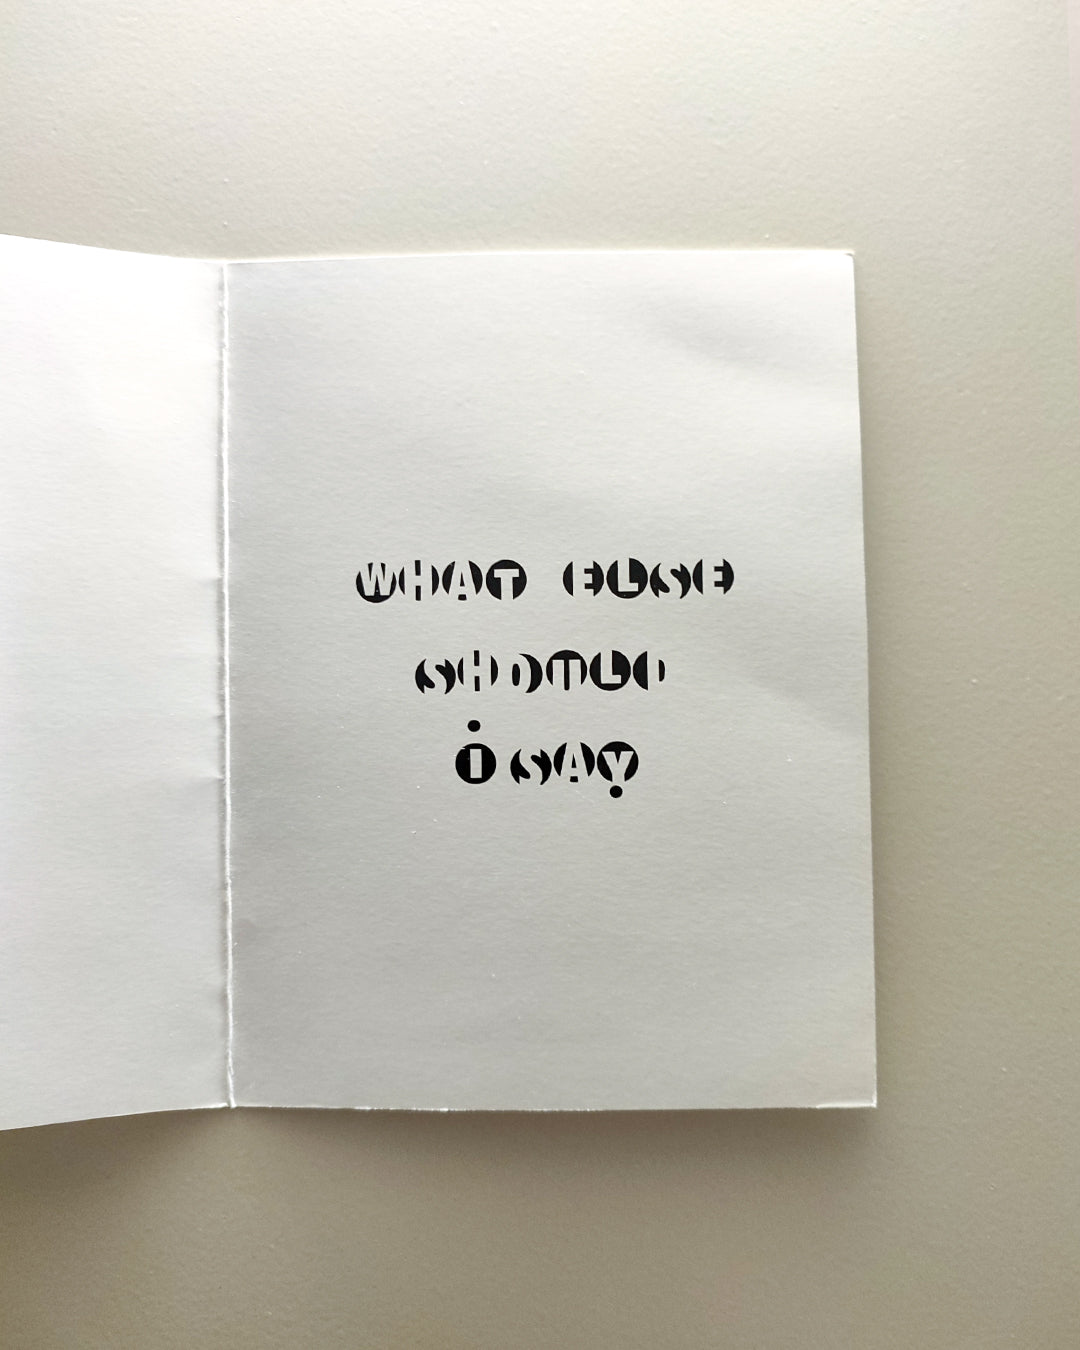 WHAT ELSE
SHOULD
I SAY